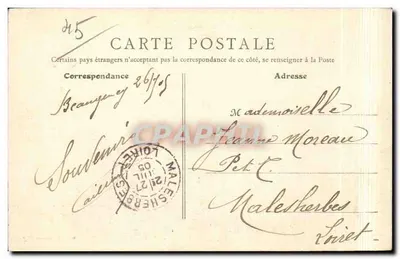 45
CARTE POSTALE
Certains pays étrangers n'acceptant pas la correspondance de ce côté, se renseigner à la Poste
Correspondance
Adresse
Beaugency 26/7/05
Souvenir
Mademoiselle
Jeanne Moreau
Malesherbes
Loiret
MALESHERBES
LOIRET
27
JUIL
05